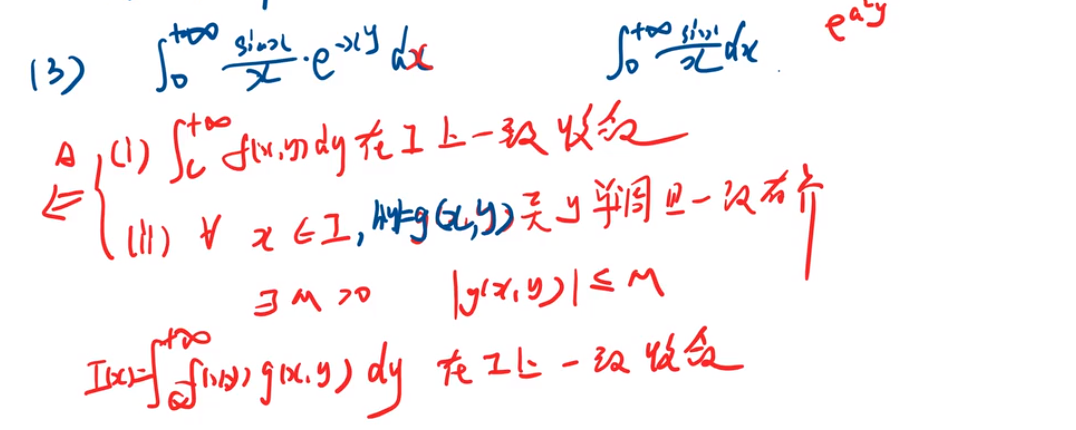 (3) ∫₀^{+∞} sinx/x · e^{-xy} dx ∫₀^{+∞} sinx/x dx e^{a²y}
A ⇐ { (I) ∫_c^{+∞} f(x,y) dy 在 I 上一致收敛
(II) ∀ x ∈ I, g(x,y) 关 y 单调且一致有界
∃ M > 0 |g(x,y)| ≤ M
I(x) = ∫^{+∞} f(x,y) g(x,y) dy 在 I 上一致收敛